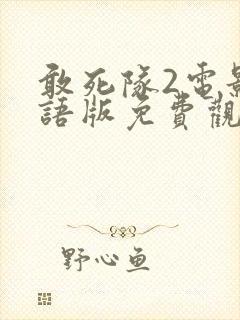 敢死隊2電影
語版免費觀
野心魚